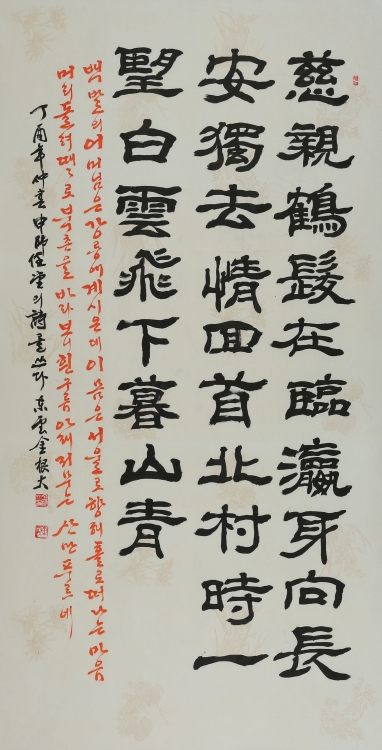 慈親鶴髮在臨瀛身向長
安獨去情回首北村時一
望白雲飛下暮山青
백발의 어머님은 강릉에 계시온데 이 몸은 서울로 향해 홀로 떠나는 마음
머리 돌려 때〃로 북촌을 바라보니 흰구름 아래 저무는 산만 푸르네
丁酉年仲春 申師任堂의 詩를 쓰다 東雲 金根大